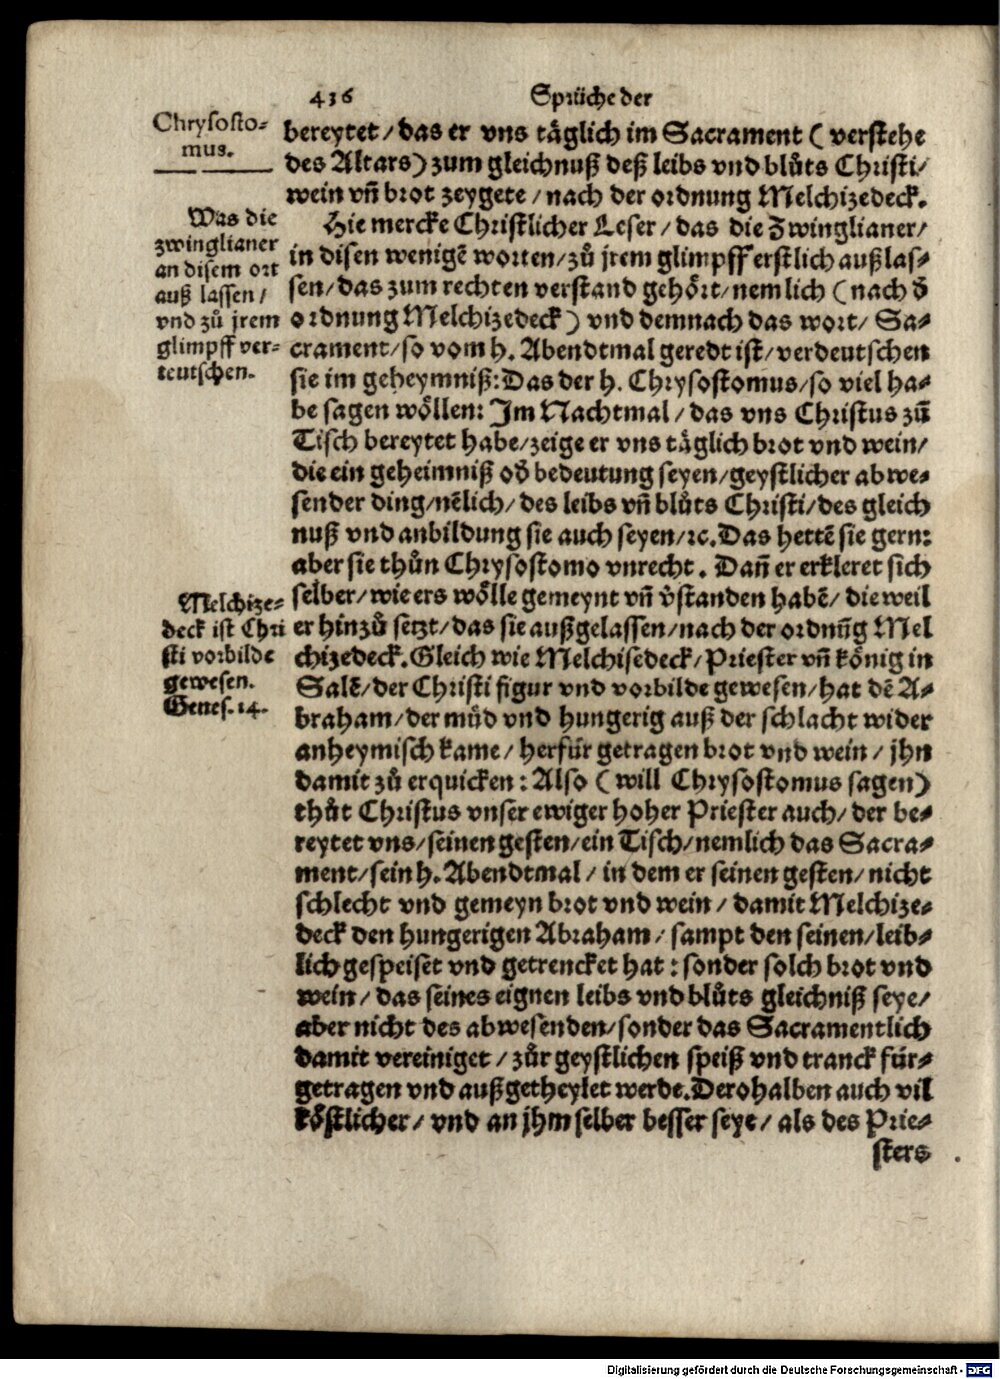 436
Sprüche der
Chrysosto-
mus.
bereytet / das er vns täglich im Sacrament ( verstehe
des Altars) zum gleichnuß deß leibs vnd blůts Christi/
wein vñ brot zeygete / nach der ordnung Melchizedeck.
Was die
zwinglianer
an disem ort
auß lassen /
vnd zů jrem
glimpff ver-
teutschen.
Hie mercke Christlicher Leser / das die Zwinglianer/
in disen wenigẽ worten/ zů jrem glimpff erstlich außlas-
sen/das zum rechten verstand gehört/nemlich (nach d̓
ordnung Melchizedeck) vnd demnach das wort/ Sa-
crament/so vom h. Abendtmal geredt ist/verdeutschen
sie im geheymniß: Das der h. Chrysostomus/so viel ha-
be sagen wöllen: Im Nachtmal / das vns Christus zů
Tisch bereytet habe/zeige er vns täglich brot vnd wein/
die ein geheimniß od̓ bedeutung seyen/geystlicher abwe-
sender ding/nẽlich/des leibs vñ blůts Christi/des gleich
nuß vnd anbildung sie auch seyen/ꝛc. Das hettẽ sie gern:
aber sie thůn Chrysostomo vnrecht. Dañ er erkleret sich
selber/wie ers wölle gemeynt vñ v̓standen habẽ/ die weil
er hinzů setzt/das sie außgelassen/nach der ordnũg Mel
chizedeck. Gleich wie Melchisedeck/Priester vñ könig in
Salẽ/der Christi figur vnd vorbilde gewesen/hat dẽ A-
braham/der müd vnd hungerig auß der schlacht wider
anheymisch kame / herfür getragen brot vnd wein / jhn
damit zů erquicken : Also ( will Chrysostomus sagen)
thůt Christus vnser ewiger hoher Priester auch/ der be-
reytet vns/seinen gesten/ein Tisch/nemlich das Sacra-
ment/sein h. Abendtmal / in dem er seinen gesten/ nicht
schlecht vnd gemeyn brot vnd wein / damit Melchize-
deck den hungerigen Abraham/ sampt den seinen/leib-
lich gespeiset vnd getrencket hat : sonder solch brot vnd
wein / das seines eignen leibs vnd blůts gleichniß seye/
aber nicht des abwesenden/sonder das Sacramentlich
damit vereiniget / zůr geystlichen speiß vnd tranck für-
getragen vnd außgetheylet werde. Derohalben auch vil
köstlicher / vnd an jhm selber besser seye / als des Prie-
sters
Melchize-
deck ist Chri
sti vorbilde
gewesen.
Genes. 14.
Digitalisierung gefördert durch die Deutsche Forschungsgemeinschaft - DFG